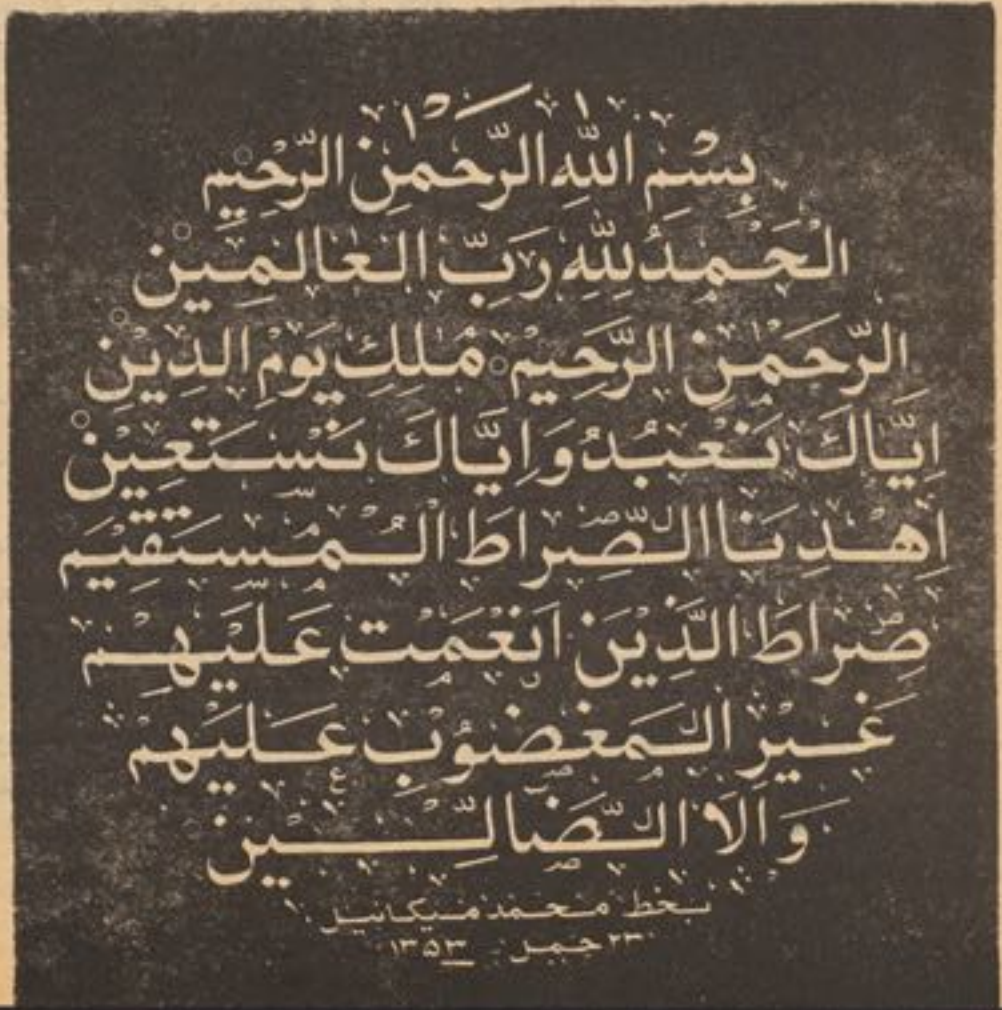 بِسْمِ اللهِ الرَّحْمٰنِ الرَّحِيْمِ
الْحَمْدُ لِلّٰهِ رَبِّ الْعَالَمِيْنَ
الرَّحْمٰنِ الرَّحِيْمِ مٰلِكِ يَوْمِ الدِّيْنِ
اِيَّاكَ نَعْبُدُ وَاِيَّاكَ نَسْتَعِيْنُ
اِهْدِنَا الصِّرَاطَ الْمُسْتَقِيْمَ
صِرَاطَ الَّذِيْنَ اَنْعَمْتَ عَلَيْهِمْ
غَيْرِ الْمَغْضُوْبِ عَلَيْهِمْ
وَلَا الضَّالِّيْنَ
بخط محمد میکائیل
۲۳ حمل ۱۳۵۳